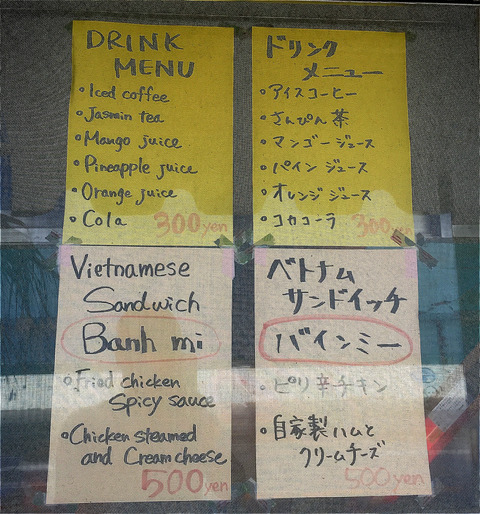 DRINK
MENU
• Iced coffee
• Jasmin tea
• Mango juice
• Pineapple juice
• Orange juice
• Cola
300yen
ドリンク
メニュー
• アイスコーヒー
• さんぴん茶
• マンゴージュース
• パインジュース
• オレンジジュース
• コカコーラ
300yen
Vietnamese
Sandwich
Banh mi
• Fried chicken
Spicy sauce
• Chicken steamed
and Cream cheese
500yen
ベトナム
サンドイッチ
バインミー
• ピリ辛チキン
• 自家製ハムと
クリームチーズ
500yen